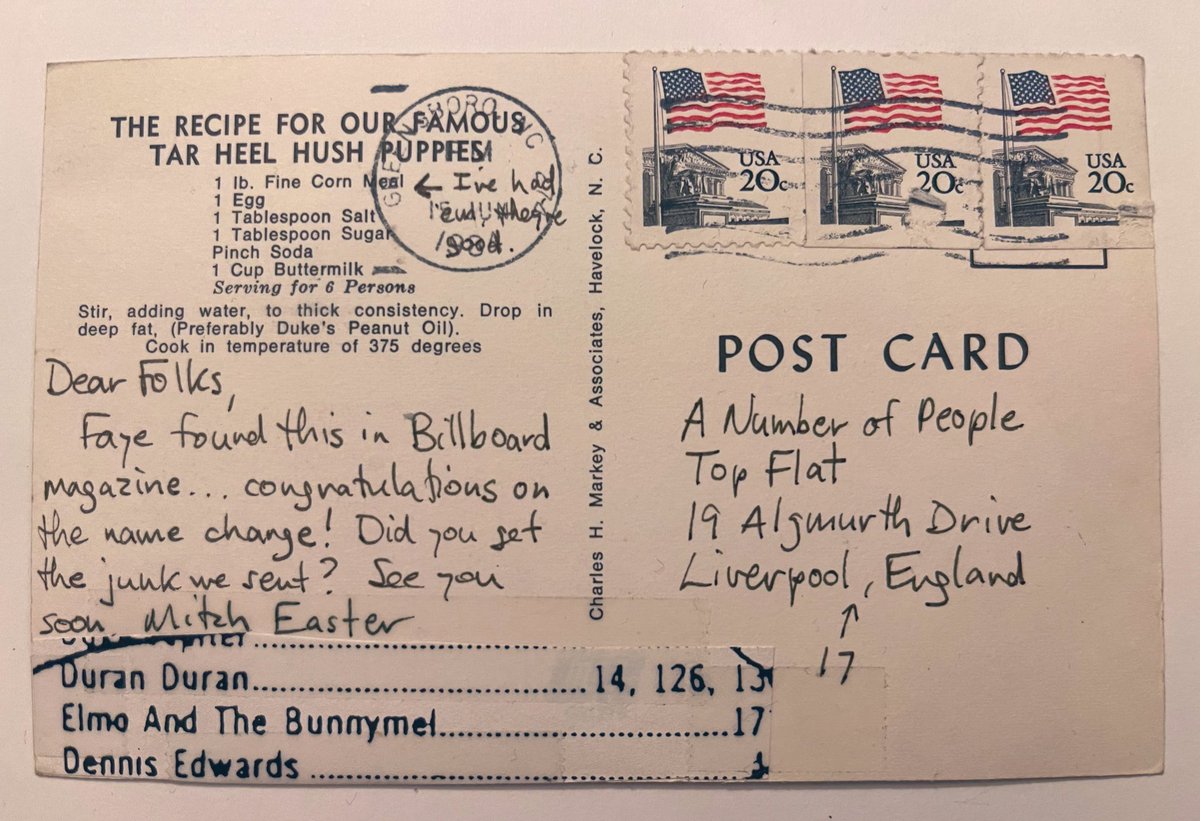 THE RECIPE FOR OUR FAMOUS
TAR HEEL HUSH PUPPIES!
1 lb. Fine Corn Meal ← I've had
1 Egg
1 Tablespoon Salt
1 Tablespoon Sugar good.
Pinch Soda
1 Cup Buttermilk
Serving for 6 Persons
Stir, adding water, to thick consistency. Drop in
deep fat, (Preferably Duke's Peanut Oil).
Cook in temperature of 375 degrees
GREENSBORO NC
PM
1984
Dear Folks,
Faye found this in Billboard
magazine... congratulations on
the name change! Did you get
the junk we sent? See you
soon Mitch Easter
Duran Duran 14, 126, 13
Elmo And The Bunnymel 17
Dennis Edwards
Charles H. Markey & Associates, Havelock, N. C.
USA
20c
USA
20c
USA
20c
POST CARD
A Number of People
Top Flat
19 Algmurth Drive
Liverpool, England
↑
17